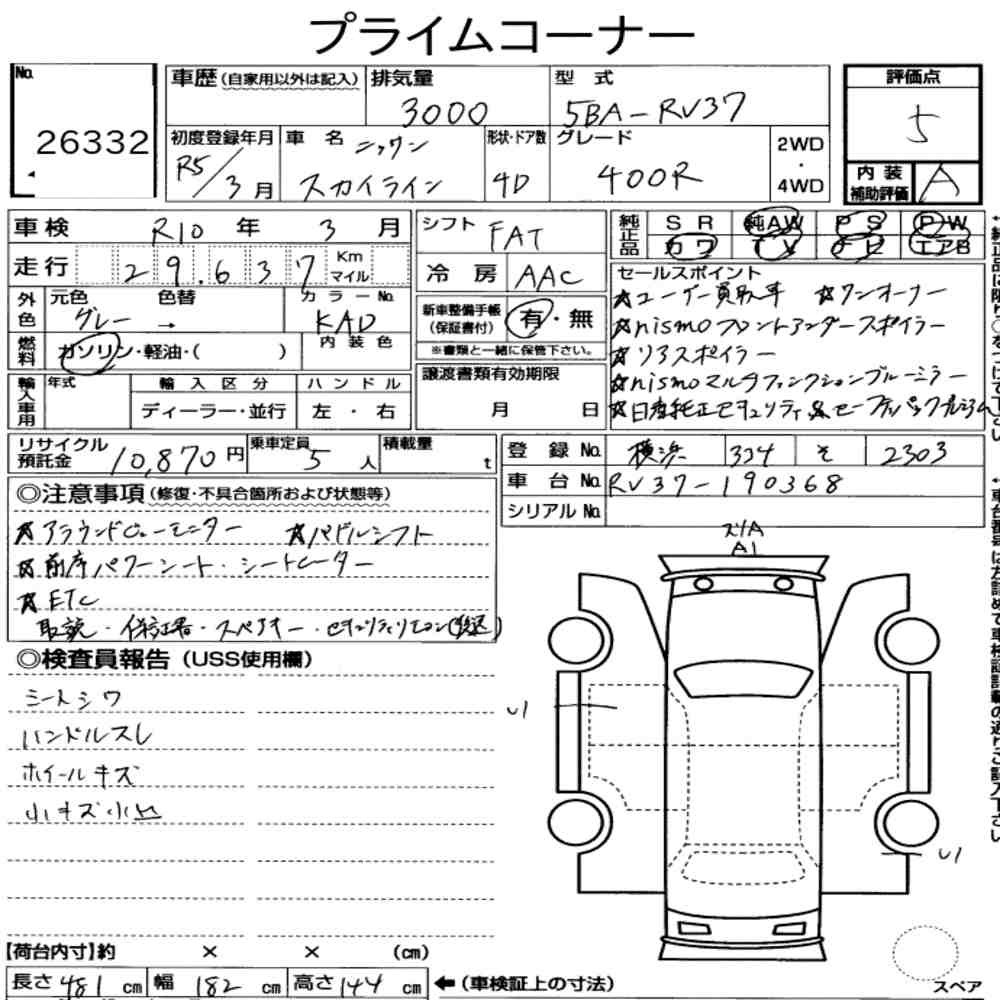 プライムコーナー
No. 26332
車歴(自家用以外は記入) 排気量 3000 型式 5BA-RV37
初度登録年月 R5/3月 車名 ニッサン スカイライン 形状・ドア数 4D グレード 400R 2WD・4WD
評価点 5
内装補助評価 A
車検 R10年 3月
走行 29,637 Km マイル
外色 元色 グレー → 色替 カラーNo. KAD
燃料 ガソリン・軽油・( ) 内装色
輸入車用 年式 輸入区分 ディーラー・並行 ハンドル 左・右
シフト FAT
冷房 AAC
新車整備手帳(保証書付) 有・無
※書類と一緒に保管下さい。
譲渡書類有効期限 月 日
純正品 SR 純AW PS PW
カワ TV ナビ エアB
セールスポイント
☆ユーザー買取車 ☆ワンオーナー
☆nismoフロントアンダースポイラー
☆リアスポイラー
☆nismoマルチファンクションブルーミラー
☆日産純正セキュリティ&セーフティパックプレミアム
リサイクル預託金 10,870円 乗車定員 5人 積載量 t
登録No. 横浜 334 そ 2303
車台No. RV37-190368
シリアルNo.
◎注意事項(修復・不具合箇所および状態等)
☆アラウンドビューモニター ☆パドルシフト
☆前席パワーシート・シートヒーター
☆ETC
取説・保証書・スペアキー・セキュリティリモコン(後送)
◎検査員報告(USS使用欄)
シートシワ
ハンドルスレ
ホイールキズ
小キズ小凹
スリA
A1
U1
U1
【荷台内寸】約 × × (cm)
長さ 481 cm 幅 182 cm 高さ 144 cm ←(車検証上の寸法)
スペア